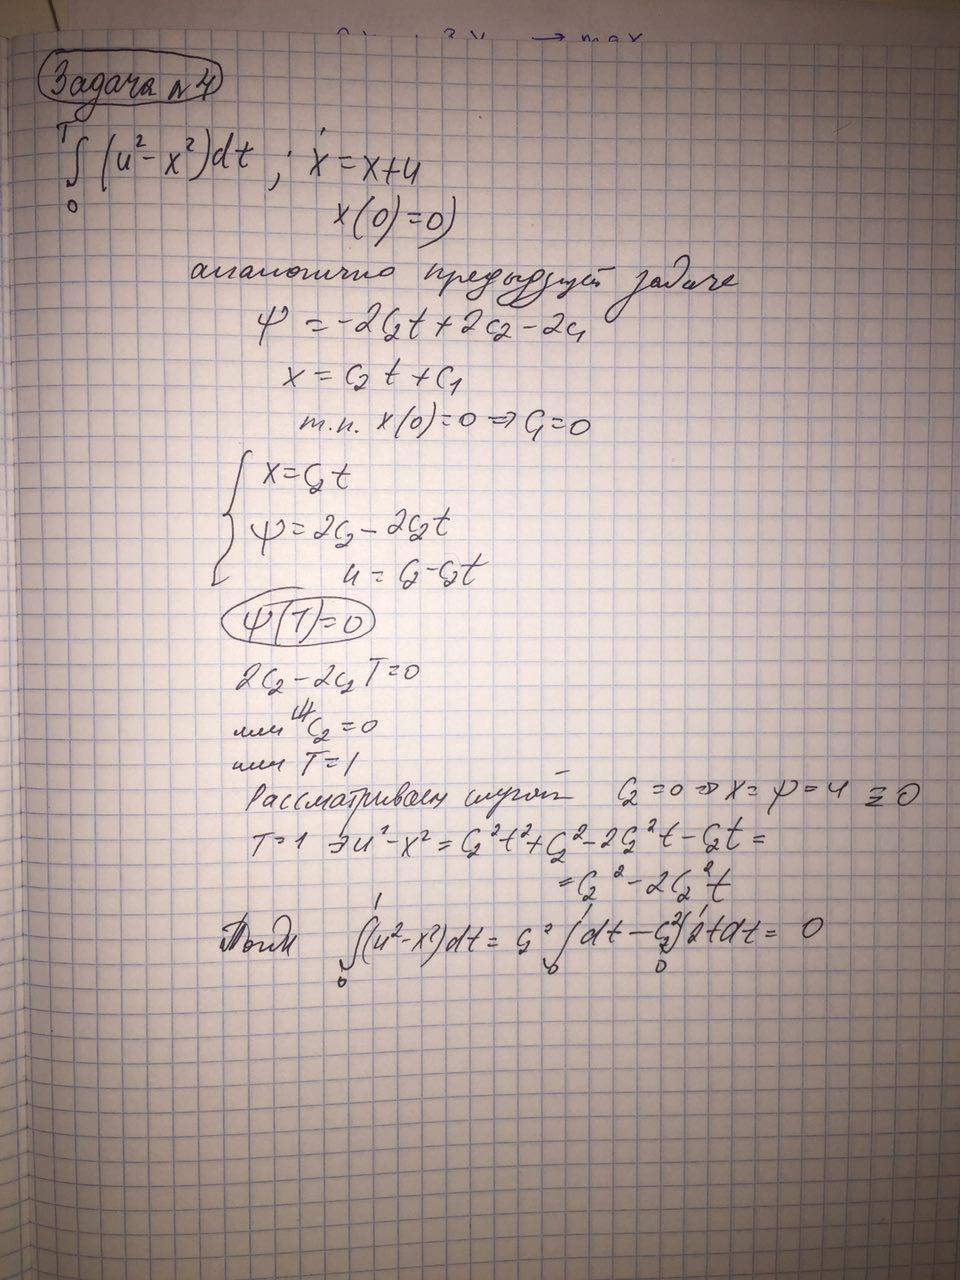 → max
Задача №4
∫₀ᵀ (u² - x²)dt ; ẋ = x+u
x(0)=0)
аналогично предыдущей задаче
ψ = -2C₂t + 2C₂ - 2C₁
x = C₂t + C₁
т.к. x(0)=0 ⇒ C₁=0
x = C₂t
ψ = 2C₂ - 2C₂t
u = C₂ - C₂t
ψ(T)=0
2C₂ - 2C₂T = 0
или C₂ = 0
или T = 1
Рассматриваем случай C₂ = 0 ⇒ x = ψ = u ≡ 0
T=1 u² - x² = C₂²t² + C₂² - 2C₂²t - C₂t =
= C₂² - 2C₂²t
Тогда ∫₀¹(u² - x²)dt = C₂² ∫₀¹ dt - C₂² ∫₀¹ 2tdt = 0